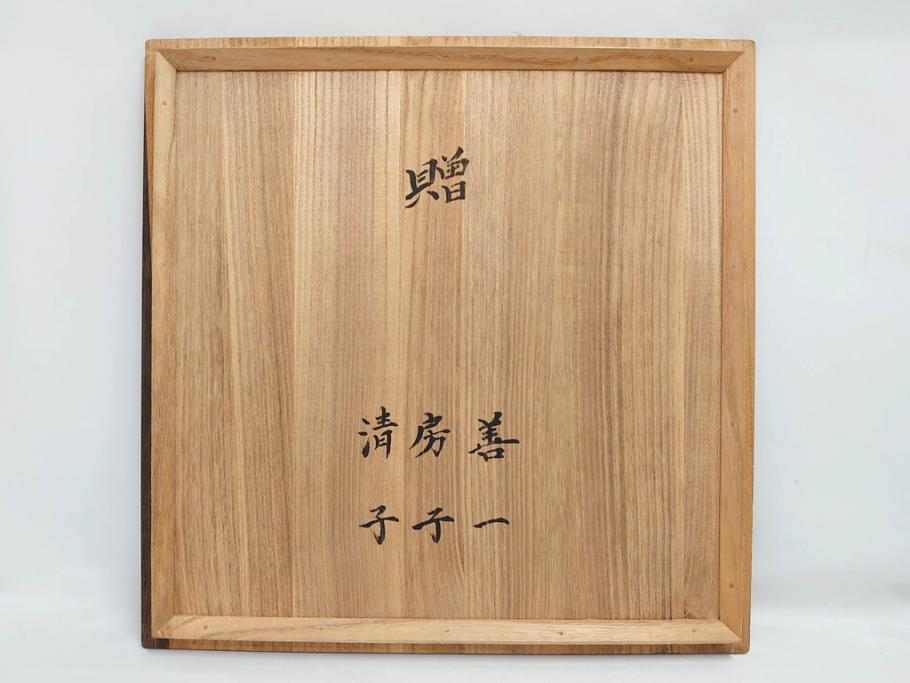 贈
善一
房子
清子